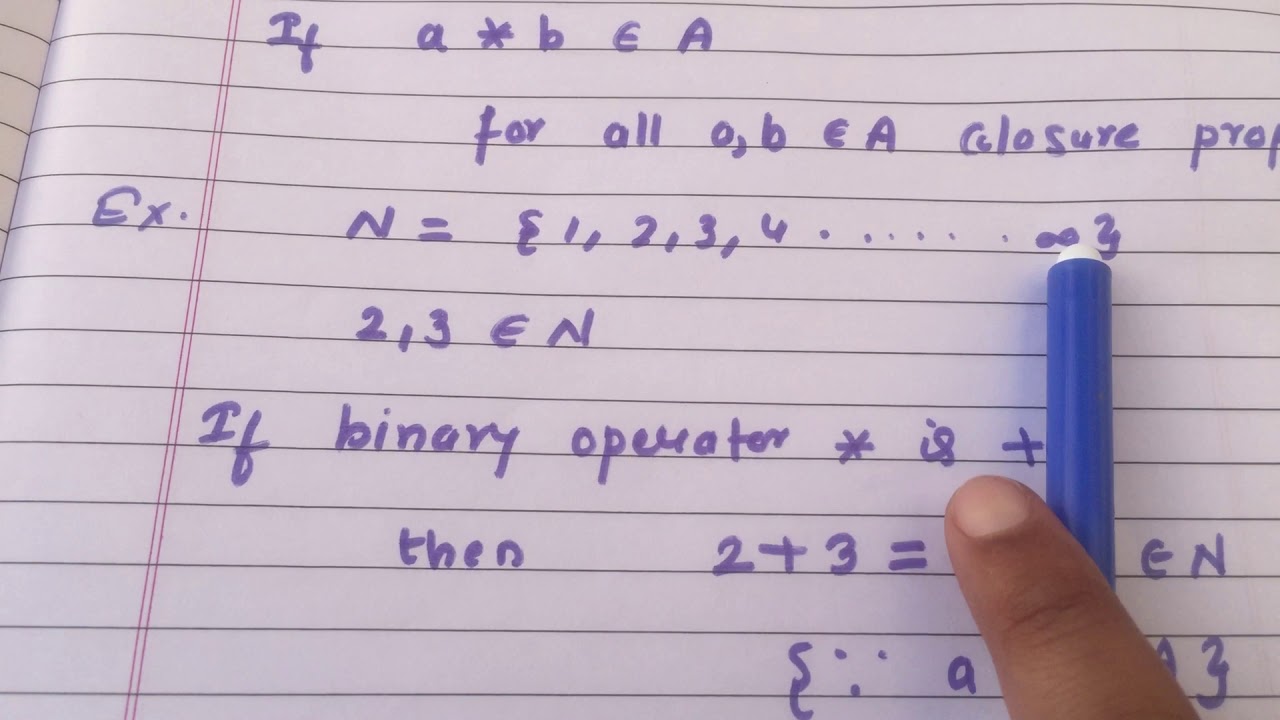 If a * b ∈ A
for all a, b ∈ A closure prop
Ex. N = {1, 2, 3, 4 . . . . . . . ∞}
2, 3 ∈ N
If binary operator * is +
then 2 + 3 = ∈ N
{∵ a }